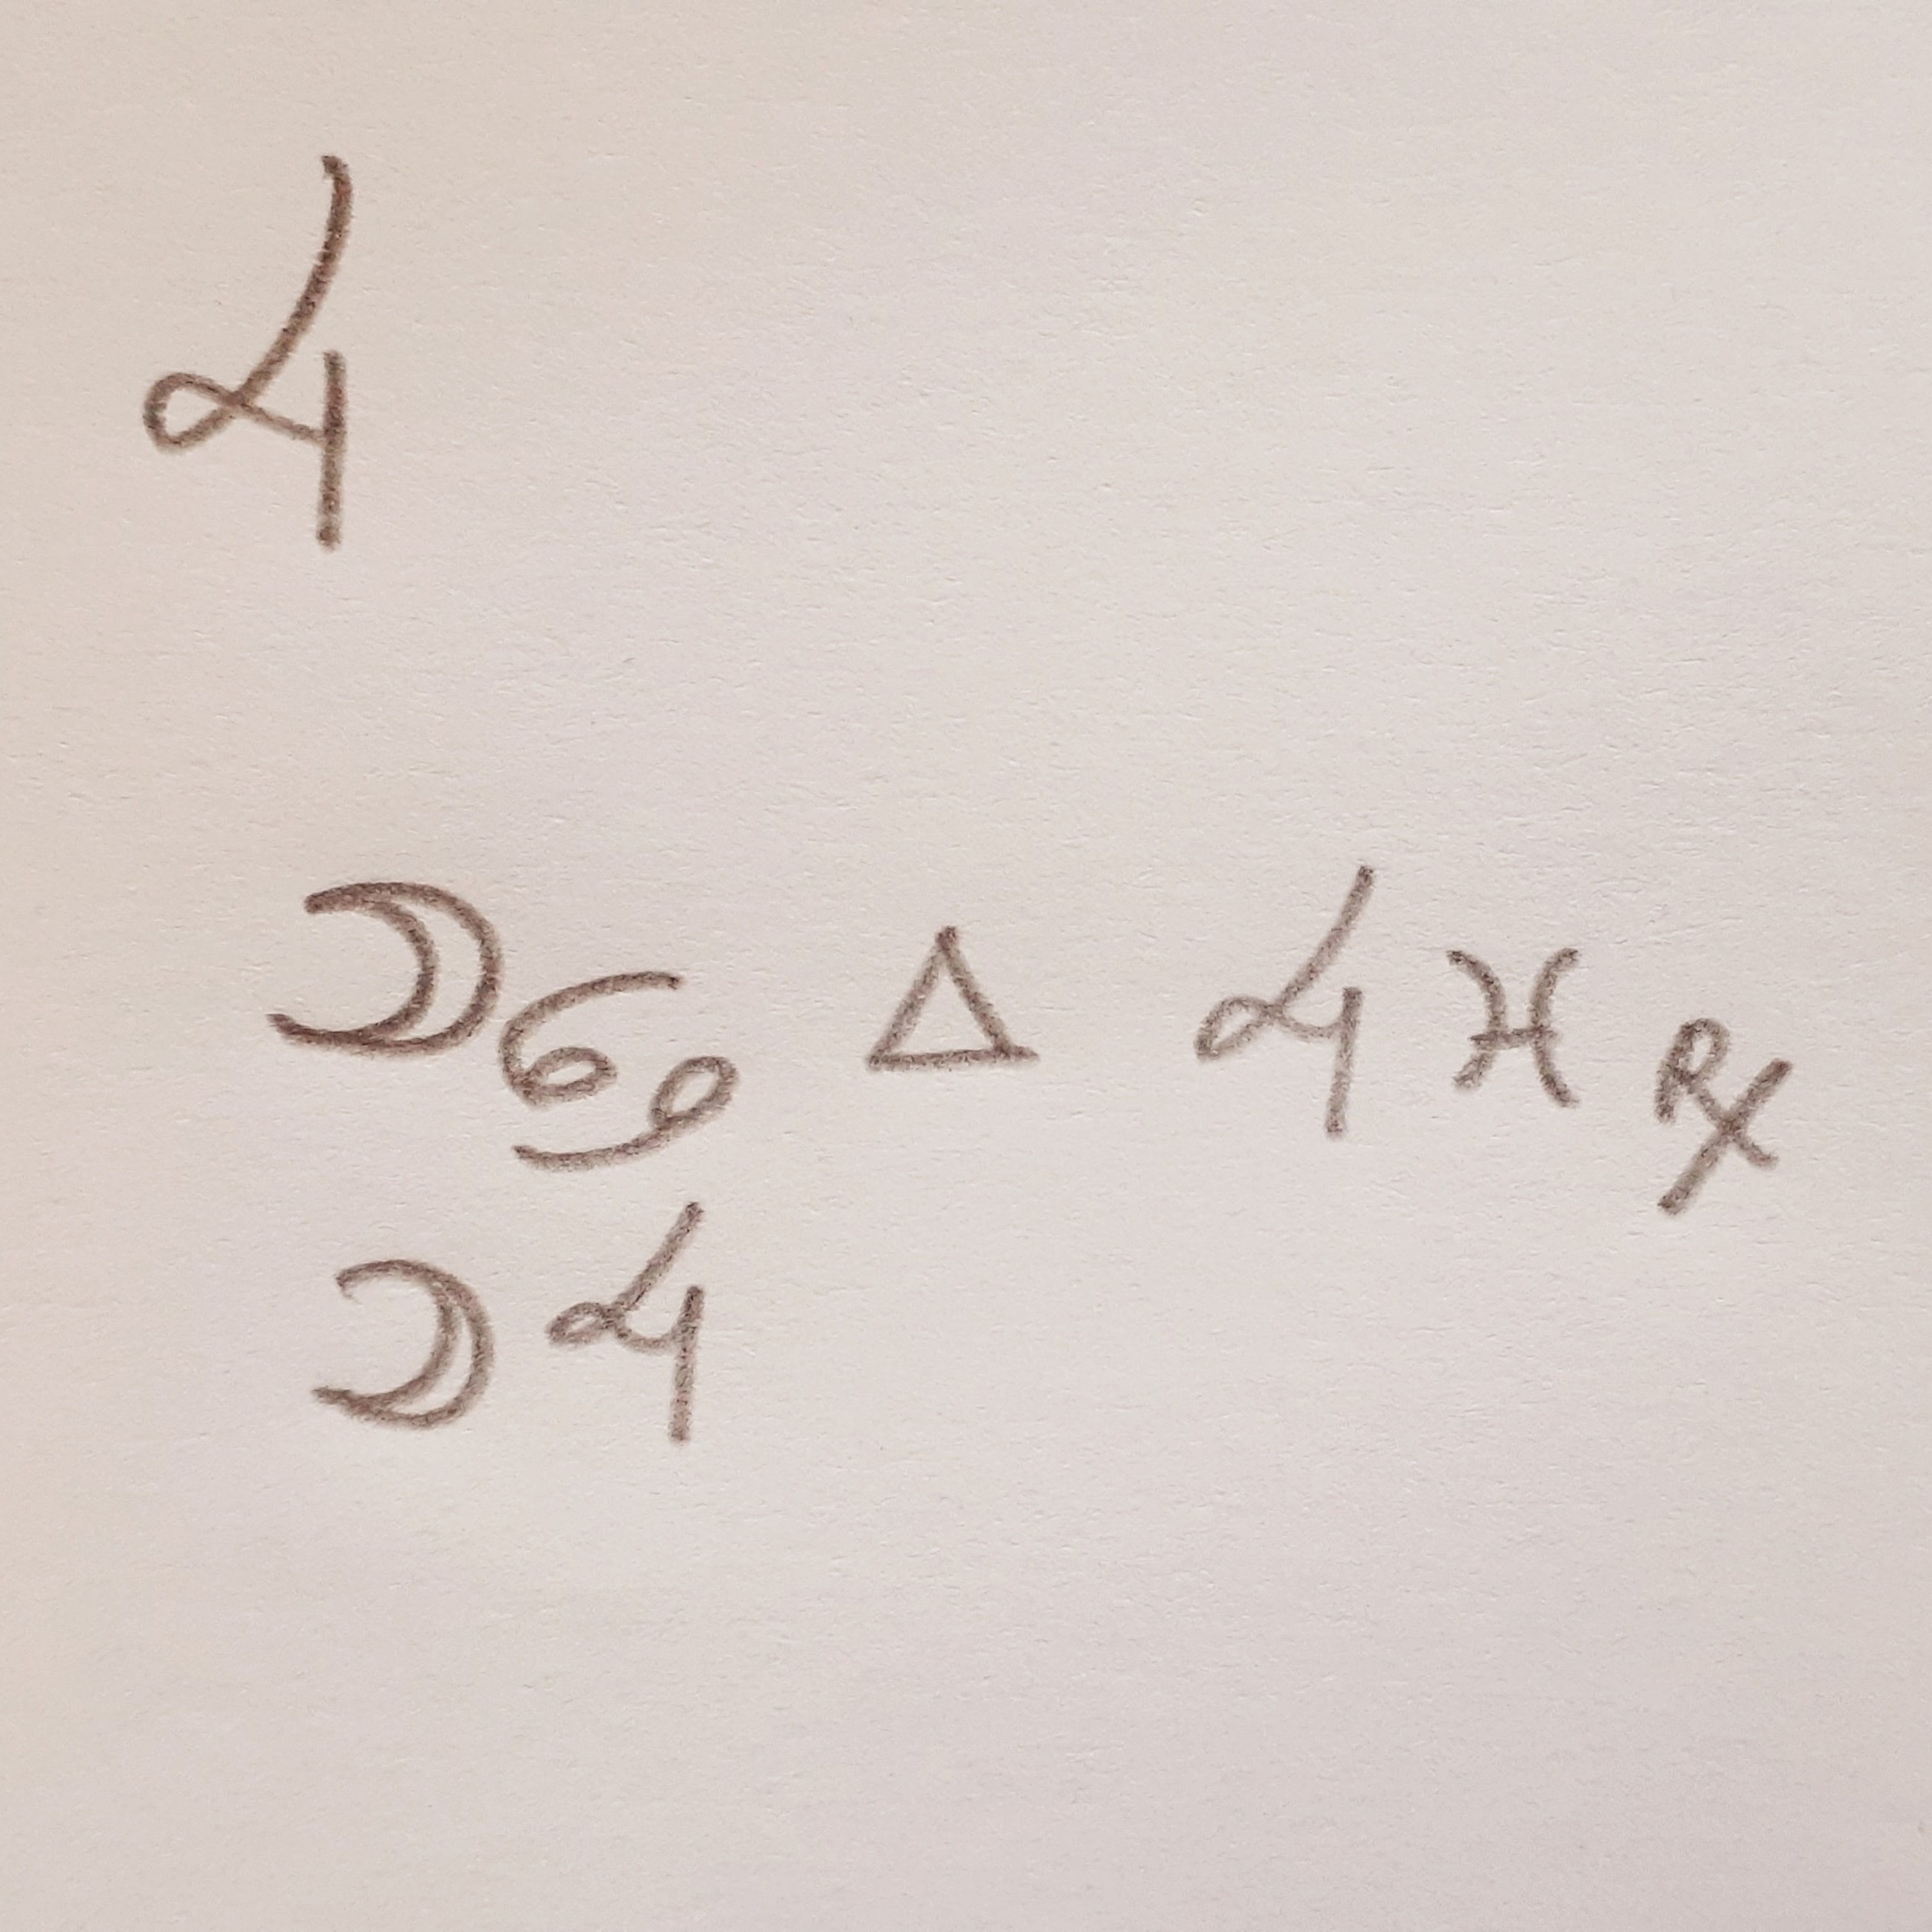 ♃
☽♋ △ ♃♓℞
☽♃